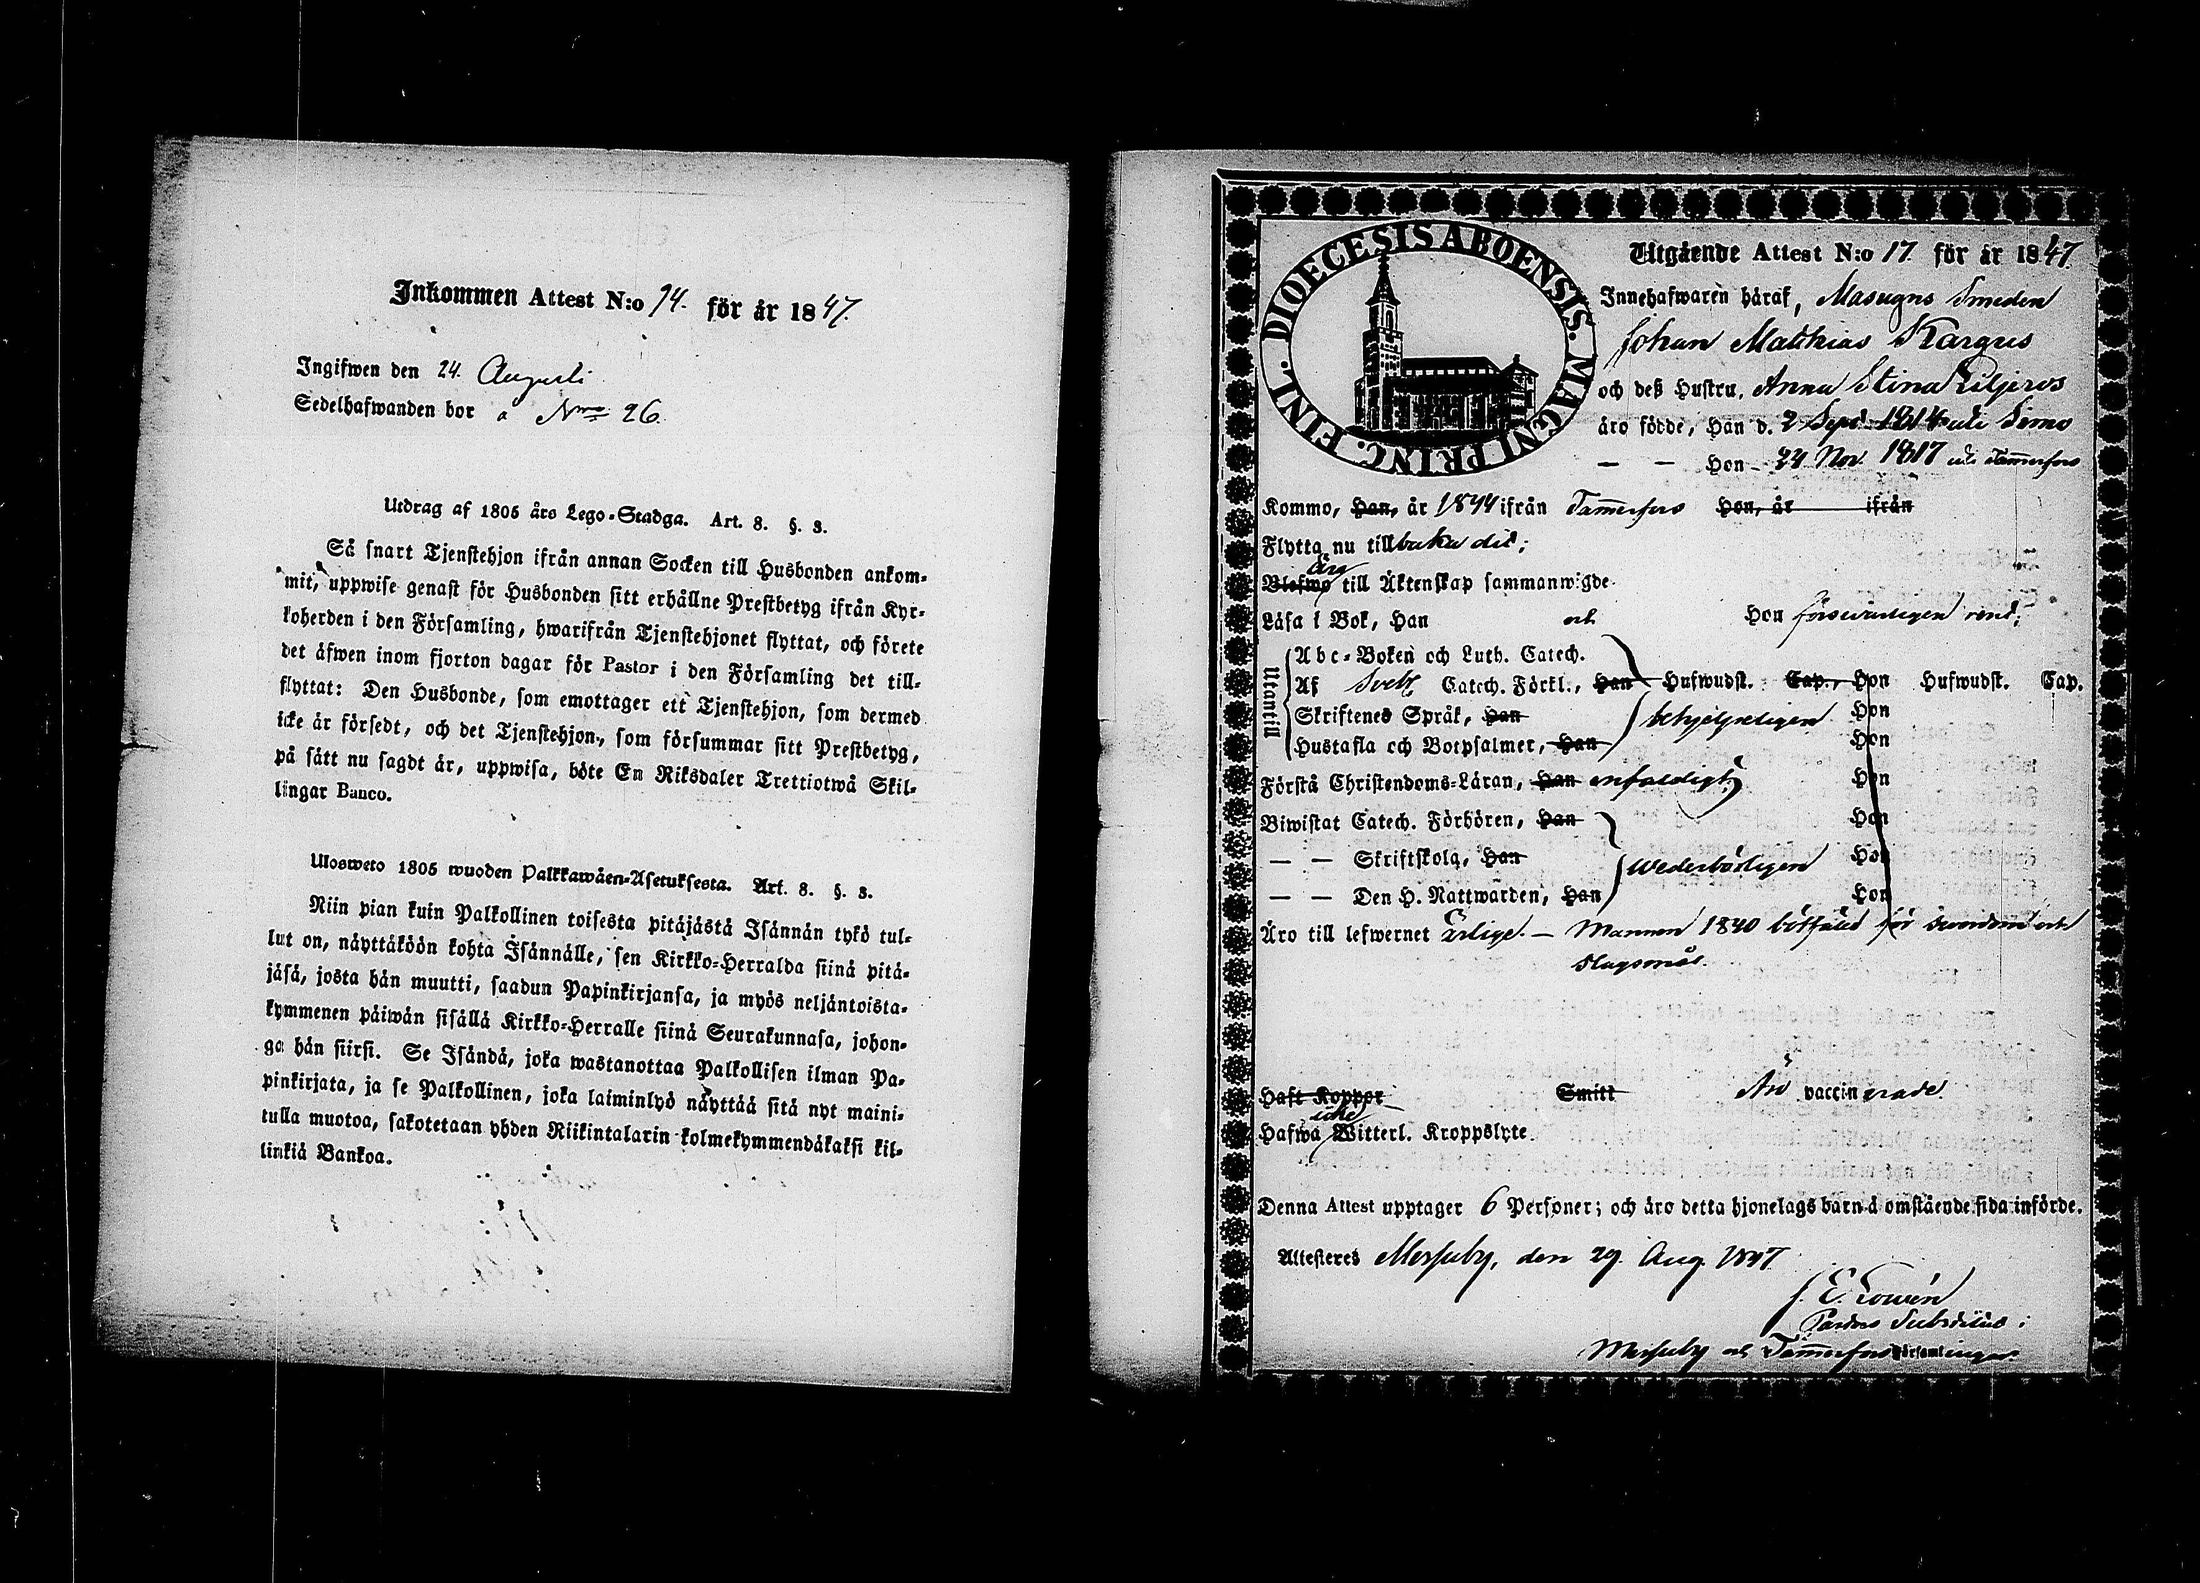 Inkommen Attest N:o 74. för år 1847.
Ingifwen den 24. Augusti
Sedelhafwanden bor å Nro 26.
Utdrag af 1805 års Lego-Stadga. Art. 8. §. 3.
Så snart Tjenstehjon ifrån annan Socken till Husbonden ankom-
mit, uppwise genast för Husbonden sitt erhållne Prestbetyg ifrån Kyr-
koherden i den Församling, hwarifrån Tjenstehjonet flyttat, och förete
det äfwen inom fjorton dagar för Pastor i den Församling det till-
flyttat: Den Husbonde, som emottager ett Tjenstehjon, som dermed
icke är försedt, och det Tjenstehjon, som försummar sitt Prestbetyg,
på sätt nu sagdt är, uppwisa, böte En Riksdaler Trettiotwå Skil-
lingar Banco.
Ulosweto 1805 wuoden Palkkawäen-Asetuksesta. Art. 8. §. 3.
Niin pian kuin Palkollinen toisesta pitäjästä Isännän tykö tul-
lut on, näyttäköön kohta Isännälle, sen Kirkko-Herralda siinä pitä-
jäsä, josta hän muutti, saadun Papinkirjansa, ja myös neljäntoista-
kymmenen päiwän sisällä Kirkko-Herralle siinä Seurakunnasa, johon-
ga hän siirsi. Se Isändä, joka wastanottaa Palkollisen ilman Pa-
pinkirjata, ja se Palkollinen, joka laiminlyö näyttää sitä nyt maini-
tulla muotoa, sakotetaan yhden Riikintalarin kolmekymmendäkaksi kil-
linkiä Bankoa.
DIOECESIS ABOENSIS. MAGNI PRINC. FINL.
Utgående Attest N:o 17 för år 1847.
Innehafwaren häraf, Masugns Smeden
Johan Matthias Kargus
och deß Hustru, Anna Stina Liljeros
äro födde, Han d. 2 Sept 1814 uti Simo
— — Hon 24 Nov. 1817 uti Tammerfors
Kommo, Han, år 1844 ifrån Tammerfors Hon, år ifrån
Flytta nu tillbaka dit;
Äro
Blefwo till Äktenskap sammanwigde
Läsa i Bok, Han och Hon försvarligen rent;
Utantill
Abc-Boken och Luth. Catech.
Af Sveb. Catech. Förkl., Han Hufwudst. Cap., Hon Hufwudst. Cap.
Skriftenes Språk, Han behjelpeligen Hon
Hustafla och Botpsalmer, Han Hon
Förstå Christendoms-Läran, Han enfaldigt; Hon
Biwistat Catech. Förhören, Han Hon
— — Skriftskola, Han wederbörligen Hon
— — Den H. Nattwarden, Han Hon
Äro till lefwernet ärlige. — Mannen 1840 bötfäld för svordom och
slagsmål.
Haft Koppor Smitt Äro vaccinerade.
icke
Hafwa Witterl. Kroppslyte.
Denna Attest upptager 6 Personer; och äro detta hjonelags barn å omstående sida införde.
Attesteres Messuby, den 29. Aug. 1847
Messuby och Tammerfors församlingar.